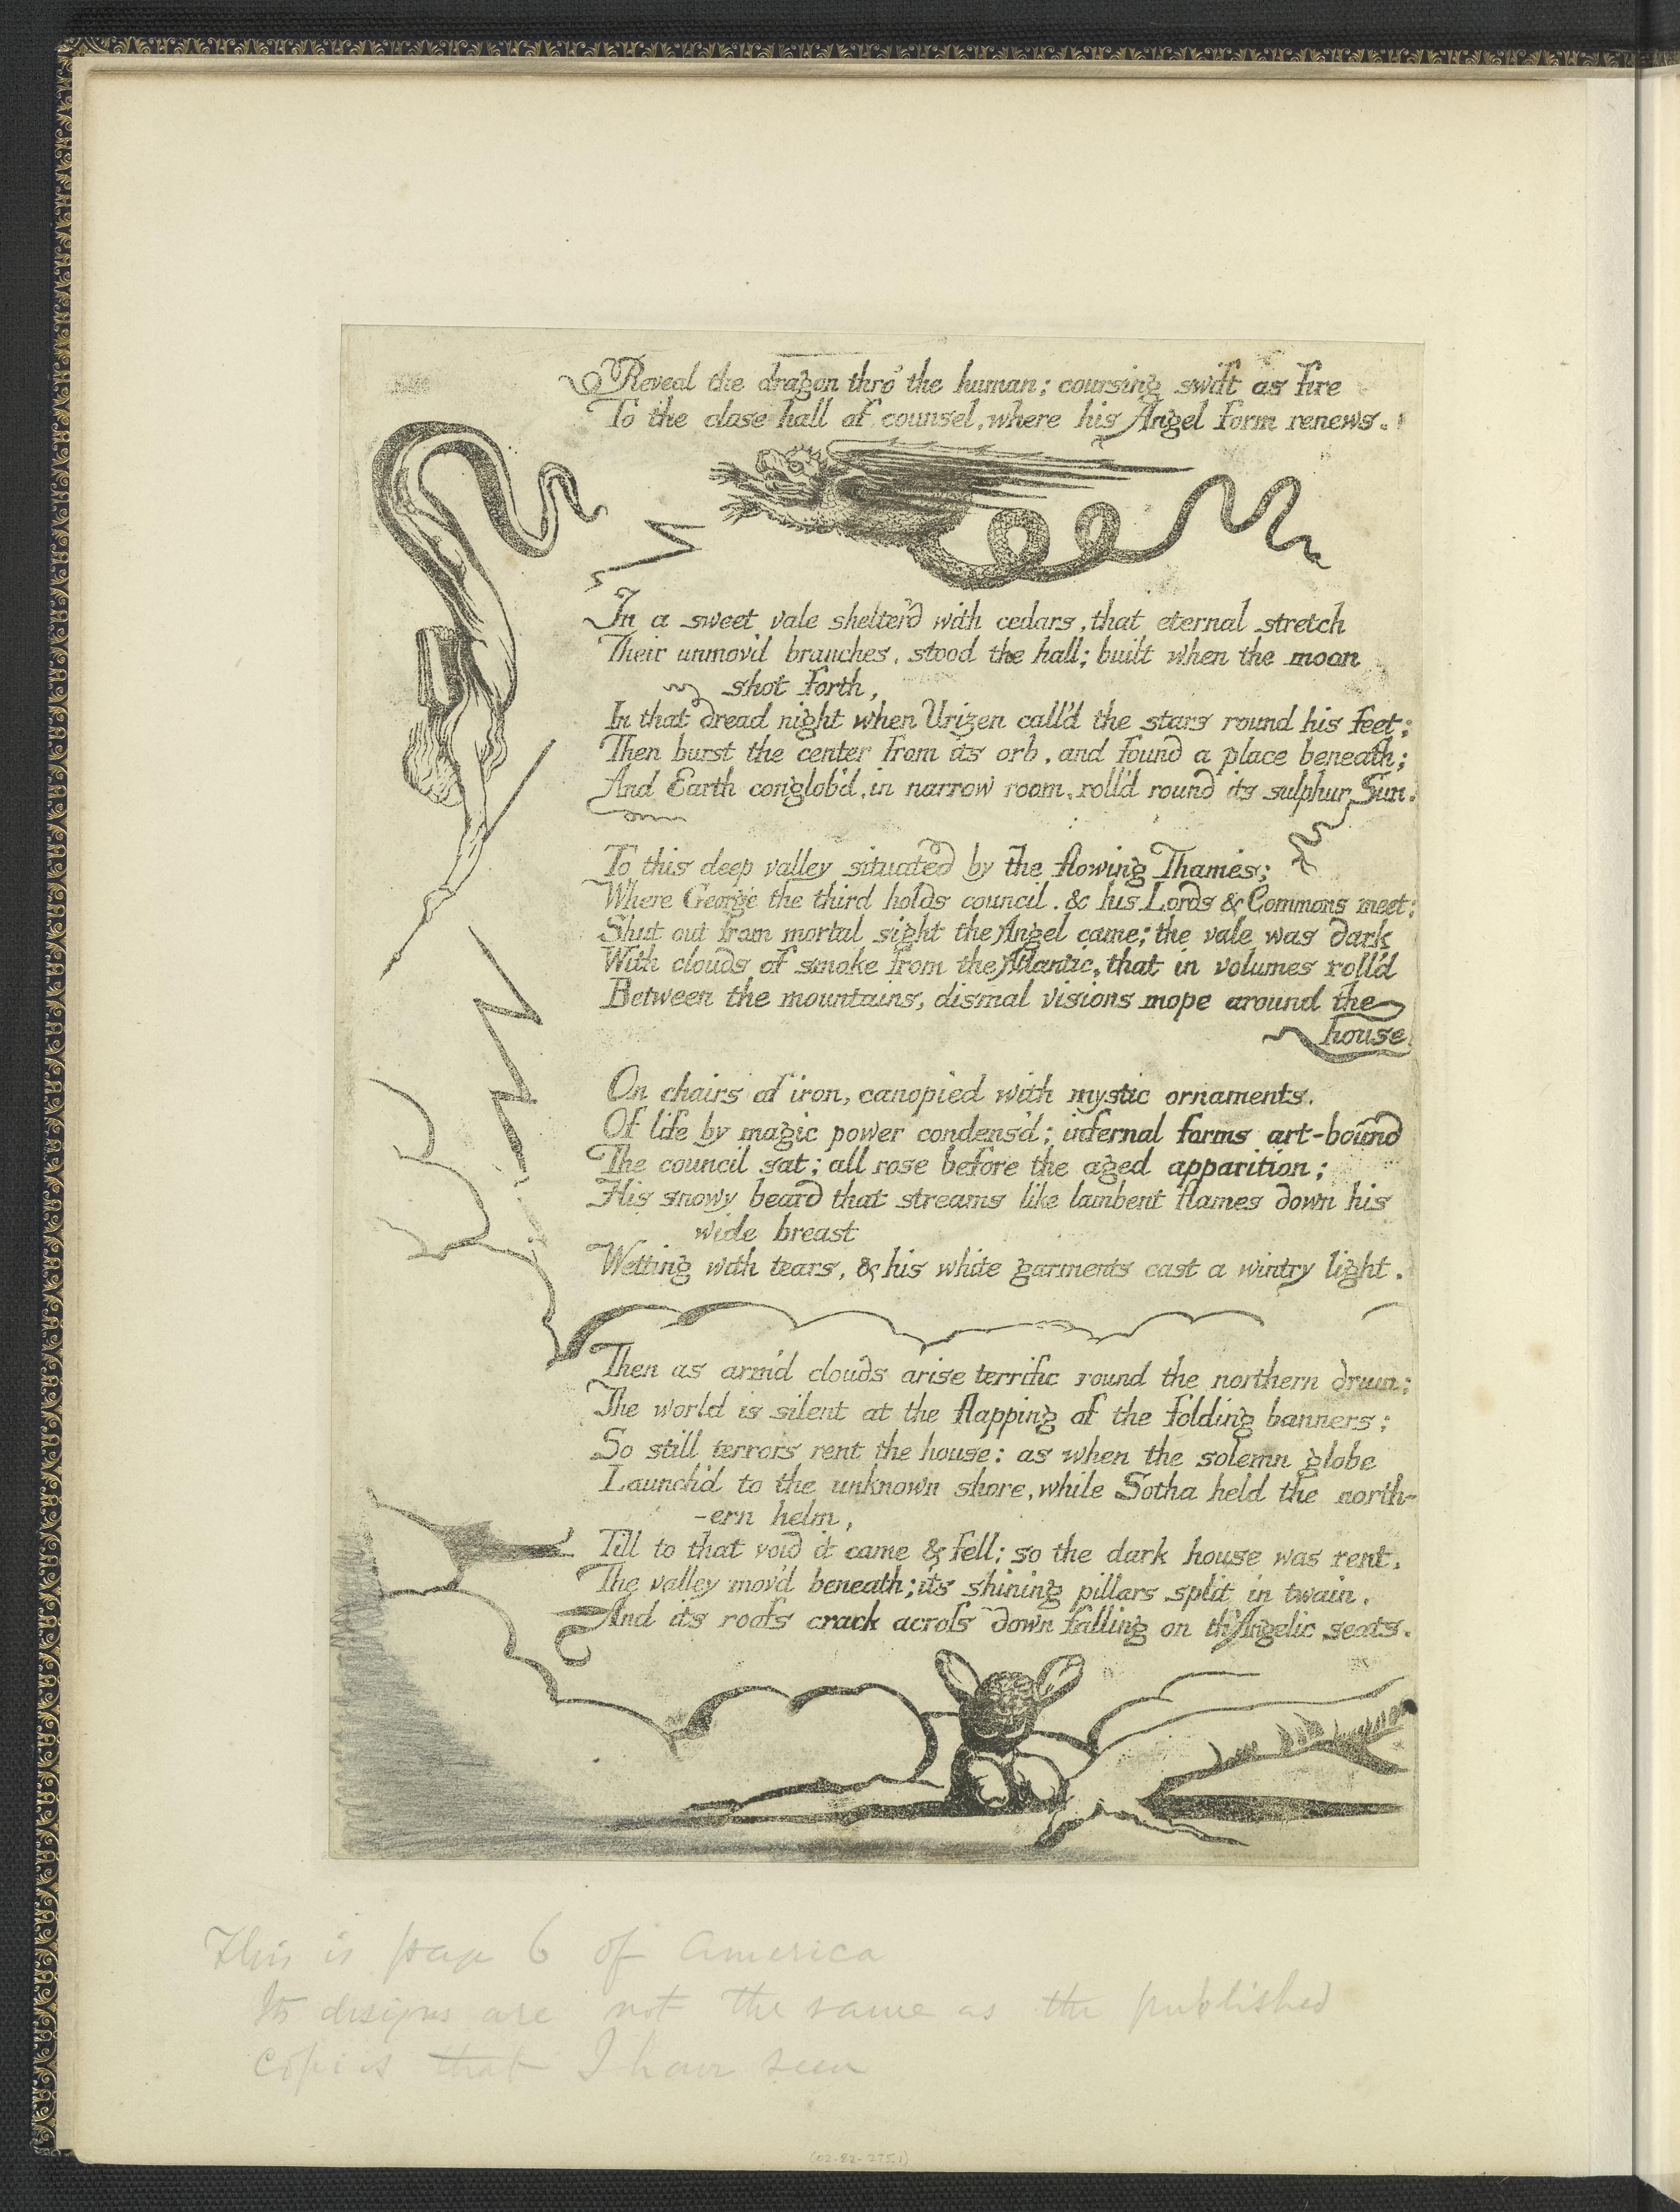 Reveal the dragon thro' the human; coursing swift as fire
To the close hall of counsel, where his Angel form renews.
In a sweet vale shelter'd with cedars, that eternal stretch
Their unmov'd branches, stood the hall; built when the moon
shot forth,
In that dread night when Urizen call'd the stars round his feet;
Then burst the center from its orb, and found a place beneath;
And Earth conglob'd, in narrow room, roll'd round its sulphur Sun.
To this deep valley situated by the flowing Thames;
Where George the third holds council. & his Lords & Commons meet:
Shut out from mortal sight the Angel came; the vale was dark
With clouds of smoke from the Atlantic, that in volumes roll'd
Between the mountains, dismal visions mope around the
house
On chairs of iron, canopied with mystic ornaments.
Of life by magic power condens'd; infernal forms art-bound
The council sat; all rose before the aged apparition;
His snowy beard that streams like lambent flames down his
wide breast
Wetting with tears, & his white garments cast a wintry light.
Then as arm'd clouds arise terrific round the northern drum;
The world is silent at the flapping of the folding banners;
So still terrors rent the house: as when the solemn globe
Launch'd to the unknown shore, while Sotha held the north-
-ern helm,
Till to that void it came & fell; so the dark house was rent,
The valley mov'd beneath; its shining pillars split in twain,
And its roofs crack across down falling on th'Angelic seats.
This is page 6 of America
Its designs are not the same as the published
copies that I have seen